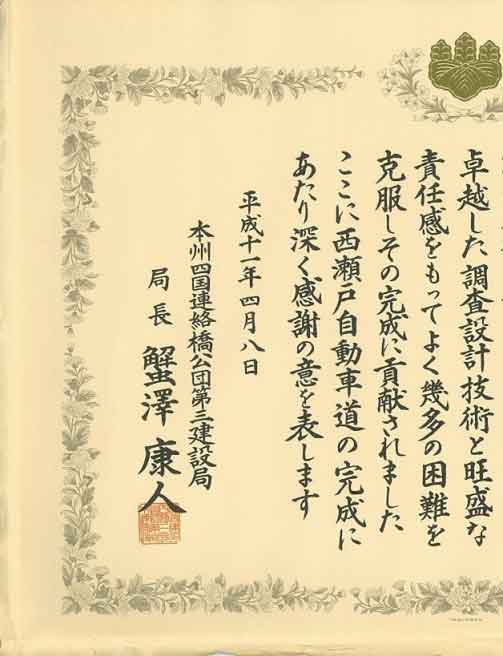 卓越した調査設計技術と旺盛な
責任感をもってよく幾多の困難を
克服しその完成に貢献されました
ここに西瀬戸自動車道の完成に
あたり深く感謝の意を表します
平成十一年四月八日
本州四国連絡橋公団第三建設局
局長 蟹澤康人